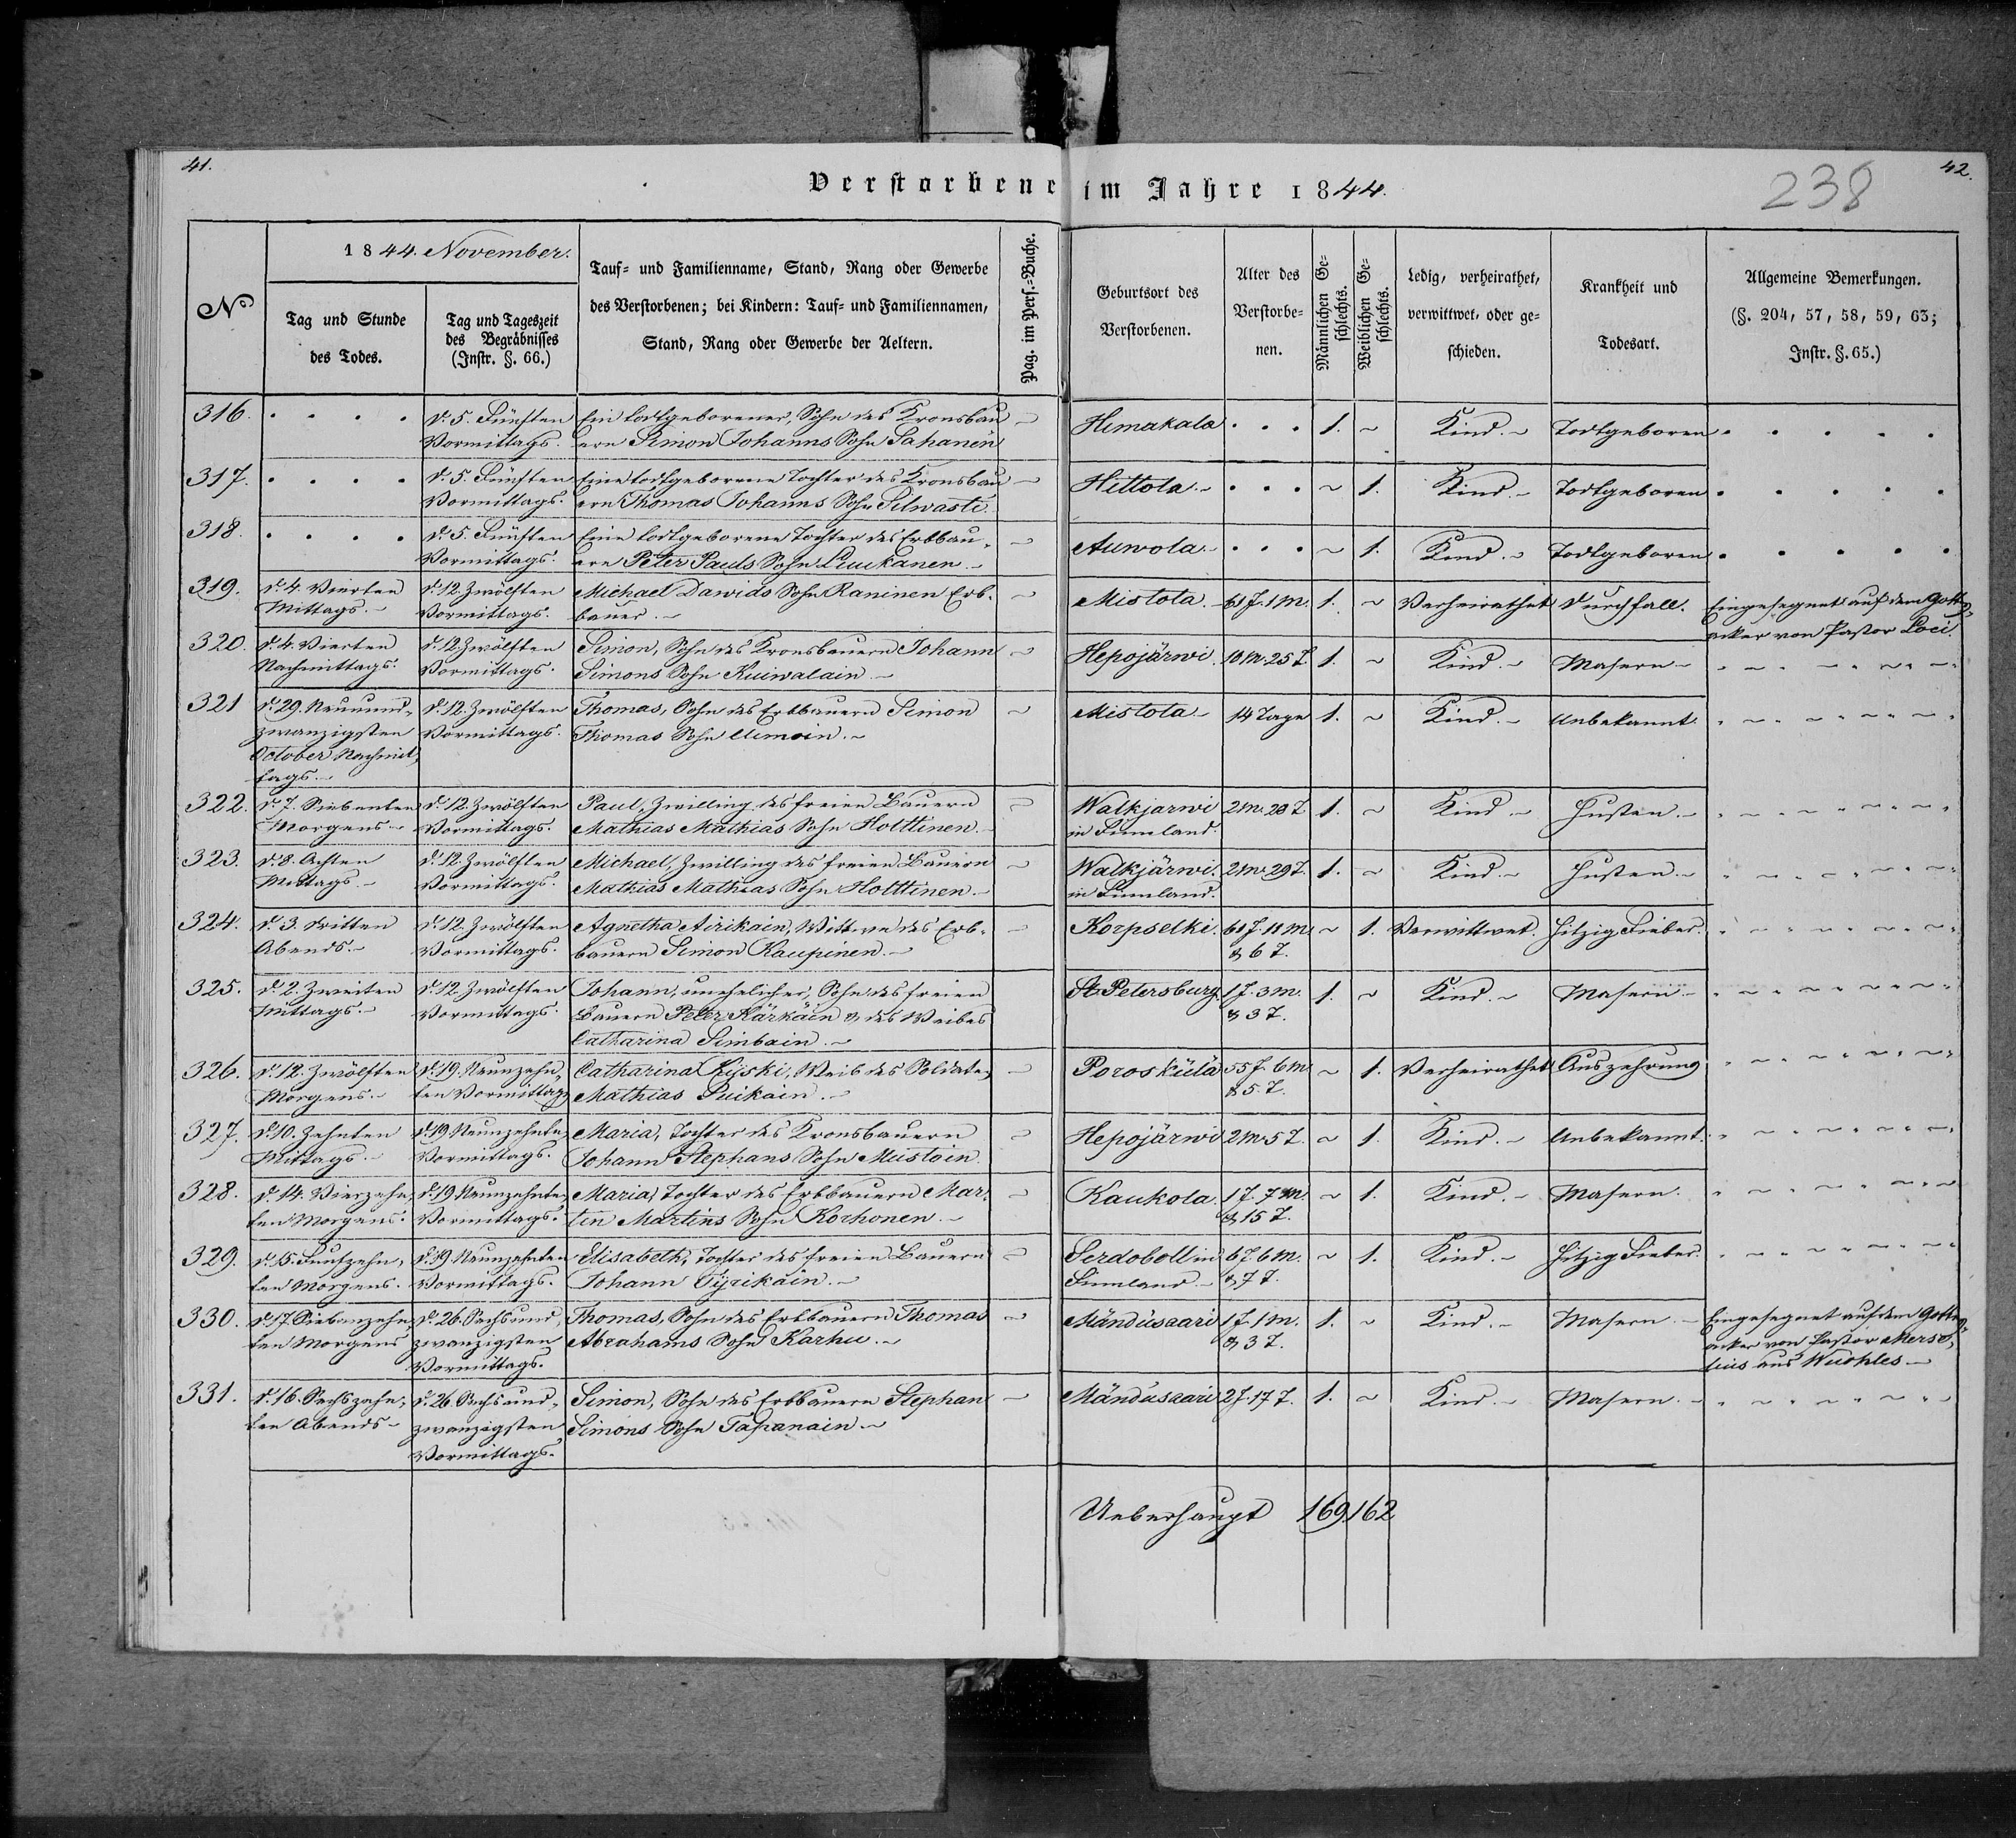 41.
42.
238
Verstorbene im Jahre 1844.
N°
1844. November.
Tag und Stunde
des Todes.
Tag und Tageszeit
des Begräbnisses
(Instr. §. 66.)
Tauf- und Familienname, Stand, Rang oder Gewerbe
des Verstorbenen; bei Kindern: Tauf- und Familiennamen,
Stand, Rang oder Gewerbe der Aeltern.
Pag. im Pers.-Buche.
Geburtsort des
Verstorbenen.
Alter des
Verstorbe-
nen.
Männlichen Ge-
schlechts.
Weiblichen Ge-
schlechts.
Ledig, verheirathet,
verwittwet, oder ge-
schieden.
Krankheit und
Todesart.
Allgemeine Bemerkungen.
(§. 204, 57, 58, 59, 63;
Instr. §. 65.)
316. . . . . d. 5. Fünften Ein todtgeborener, Sohn des Kronsbau Himakala . . . 1. ~ Kind. ~ Todtgeboren . . . . .
Vormittags. ern Simon Johanns Sohn Sahanen
317. . . . . d. 5. Fünften Eine todtgeborene Tochter des Kronsbau Hittola. . . . ~ 1. Kind. ~ Todtgeboren . . . . .
Vormittags. ern Thomas Johanns Sohn Silwasti.
318. . . . . d. 5. Fünften Eine todtgeborene Tochter des Erbbau- Auwola. . . . ~ 1. Kind. ~ Todtgeboren . . . . .
Vormittags. ern Peter Pauls Sohn Liuukanen.
319. d. 4. Vierten d. 12. Zwölften Michael Dawids Sohn Raninen Erb- Mistola. 61 J. 1 M. 1. ~ Verheirathet Durchfall. Eingesegnet auf dem Gottes-
Mittags. Vormittags. bauer. acker von Pastor Loci.
320. d. 4. Vierten d. 12. Zwölften Simon, Sohn des Kronsbauern Johann Hepojärwi. 10 M. 25 T. 1. ~ Kind. ~ Masern
Nachmittags. Vormittags. Simons Sohn Kuiwalain
321 d. 29. Neunund- d. 12. Zwölften Thomas, Sohn des Erbbauern Simon Mistola 14 Tage 1. ~ Kind. ~ Unbekannt.
zwanzigsten Vormittags. Thomas Sohn
October Nachmit-
tags.
322. d. 7. Siebenten d. 12. Zwölften Paul, Zwilling des freien Bauern Walkjarwi 2 M. 28 T. 1. ~ Kind. ~ Husten.
Morgens Vormittags. Mathias Mathias Sohn Holttinen. in Finnland.
323. d. 8. Achten d. 12. Zwölften Michael, Zwilling des freien Bauern Walkjärwi. 2 M. 29 T. 1. ~ Kind. ~ Husten.
Mittags. Vormittags. Mathias Mathias Sohn Holttinen. in Finnland.
324. d. 3. Dritten d. 12. Zwölften Agnetha Airikain, Wittwe des Erb- Korpselki. 61 J. 11 M. ~ 1. Verwittwet. Hitzig Fieber.
Abends. Vormittags. bauern Simon Kaupinen. & 6 T.
325. d. 2. Zweiten d. 12. Zwölften Johann, unehelicher, Sohn des freien St. Petersburg. 1 J. 3 M. 1. ~ Kind. ~ Masern
Mittags. Vormittags. Bauern Peter Kärkäin & des Weibes & 3 T.
Catharina Simbain.
326. d. 12. Zwölften d. 19. Neunzehn- Catharina Küski, Weib des Soldaten Poroskülä 55 J. 6 M. ~ 1. Verheirathet Auszehrung
Morgens. ten Vormittags Mathias Puikain. & 5 T.
327. d. 10. Zehnten d. 19 Neunzehnten Maria, Tochter des Kronsbauern Hepojärwi 2 M. 5 T. ~ 1. Kind. ~ Unbekannt.
Mittags. Vormittags. Johann Stephans Sohn Mustoin
328. d. 14. Vierzehn- d. 19 Neunzehnten Maria, Tochter des Erbbauern Mar- Kaukola. 1 J. 7 M. ~ 1. Kind. ~ Masern.
ten Morgens. Vormittags. tin Martins Sohn Korhonen. & 15 T.
329. d. 15. Funfzehn- d. 19 Neunzehnten Elisabeth, Tochter des freien Bauern Serdoboll in 6 J. 6 M. ~ 1. Kind. ~ Hitzig Fieber.
ten Morgens. Vormittags. Johann Tyrikäin. Finnland. & 7 T.
330. d. 17. Siebenzehn- d. 26. Sechsund- Thomas, Sohn des Erbbauern Thomas Mändüsaari 1 J. 1 M. 1. ~ Kind. ~ Masern. Eingesegnet auf dem Gottes-
ten Morgens zwanzigsten Abrahams Sohn Karhu. & 3 T. acker von Pastor
Vormittags. aus Wuohles
331. d. 16. Sechszehn- d. 26. Sechsund- Simon, Sohn des Erbbauern Stephan Mändüsaari 2 J. 17 T. 1. ~ Kind. ~ Masern.
ten Abends zwanzigsten Simons Sohn Tapanain.
Vormittags.
Ueberhaupt 169 162